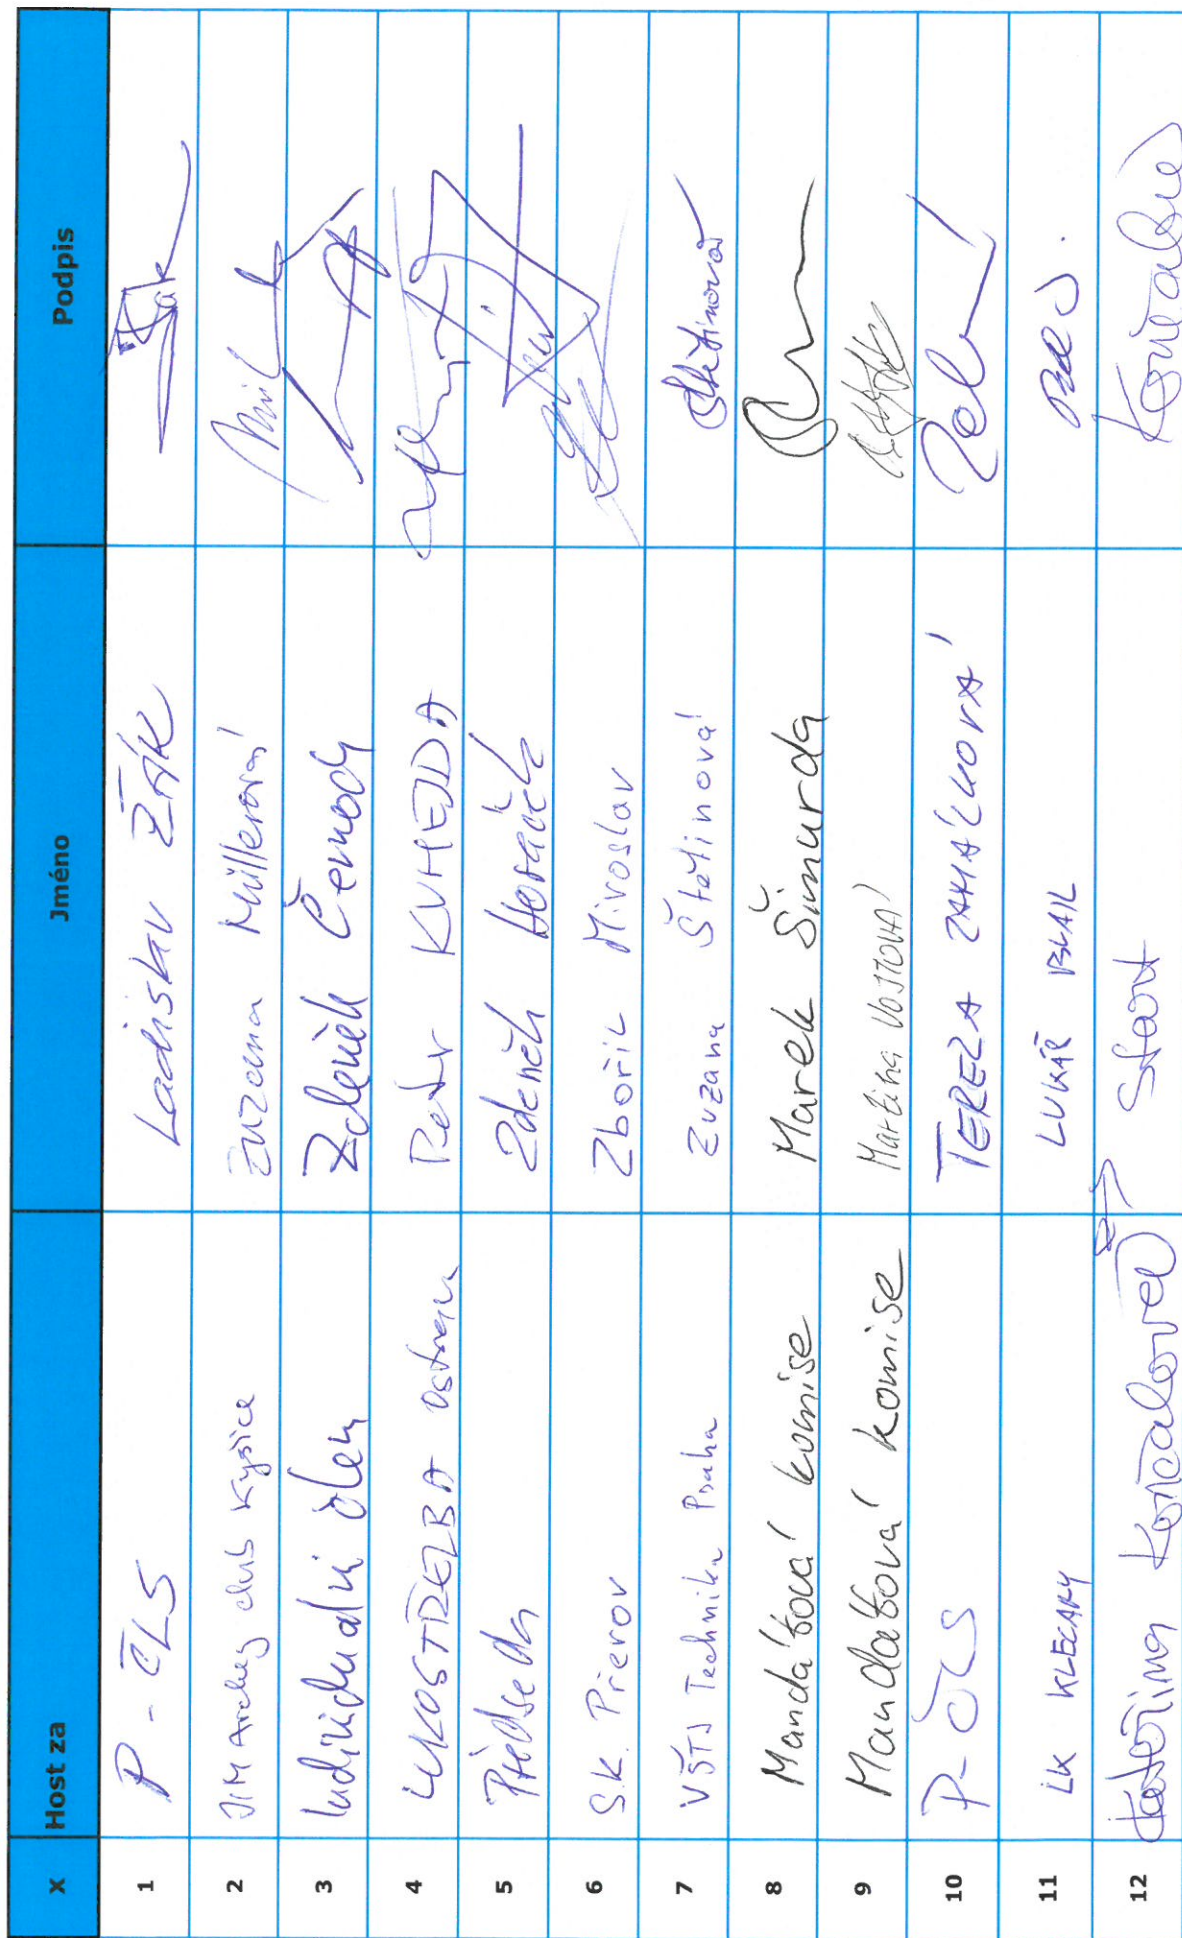 X Host za Jméno Podpis
1 P - ČLS Ladislav ŽÁK
2 JIM Archery club Kyšice Zuzana Müllerová
3 Individuální člen Zdeněk Černoch
4 LUKOSTŘELBA Ostrava Petr KVHEJDA
5 Předseda Zdeněk Horáček
6 S.K. Přerov Zbořil Miroslav
7 VŠTJ Technika Praha Zuzana Štětinová Štětinová
8 Mandátová komise Marek Šimurda
9 Mandátová komise Martina VOJTOVÁ
10 P-ČLS TEREZA ZAHÁLKOVÁ
11 LK KLECANY LUKÁŠ BLAIL
12 Kateřina Končalová Start